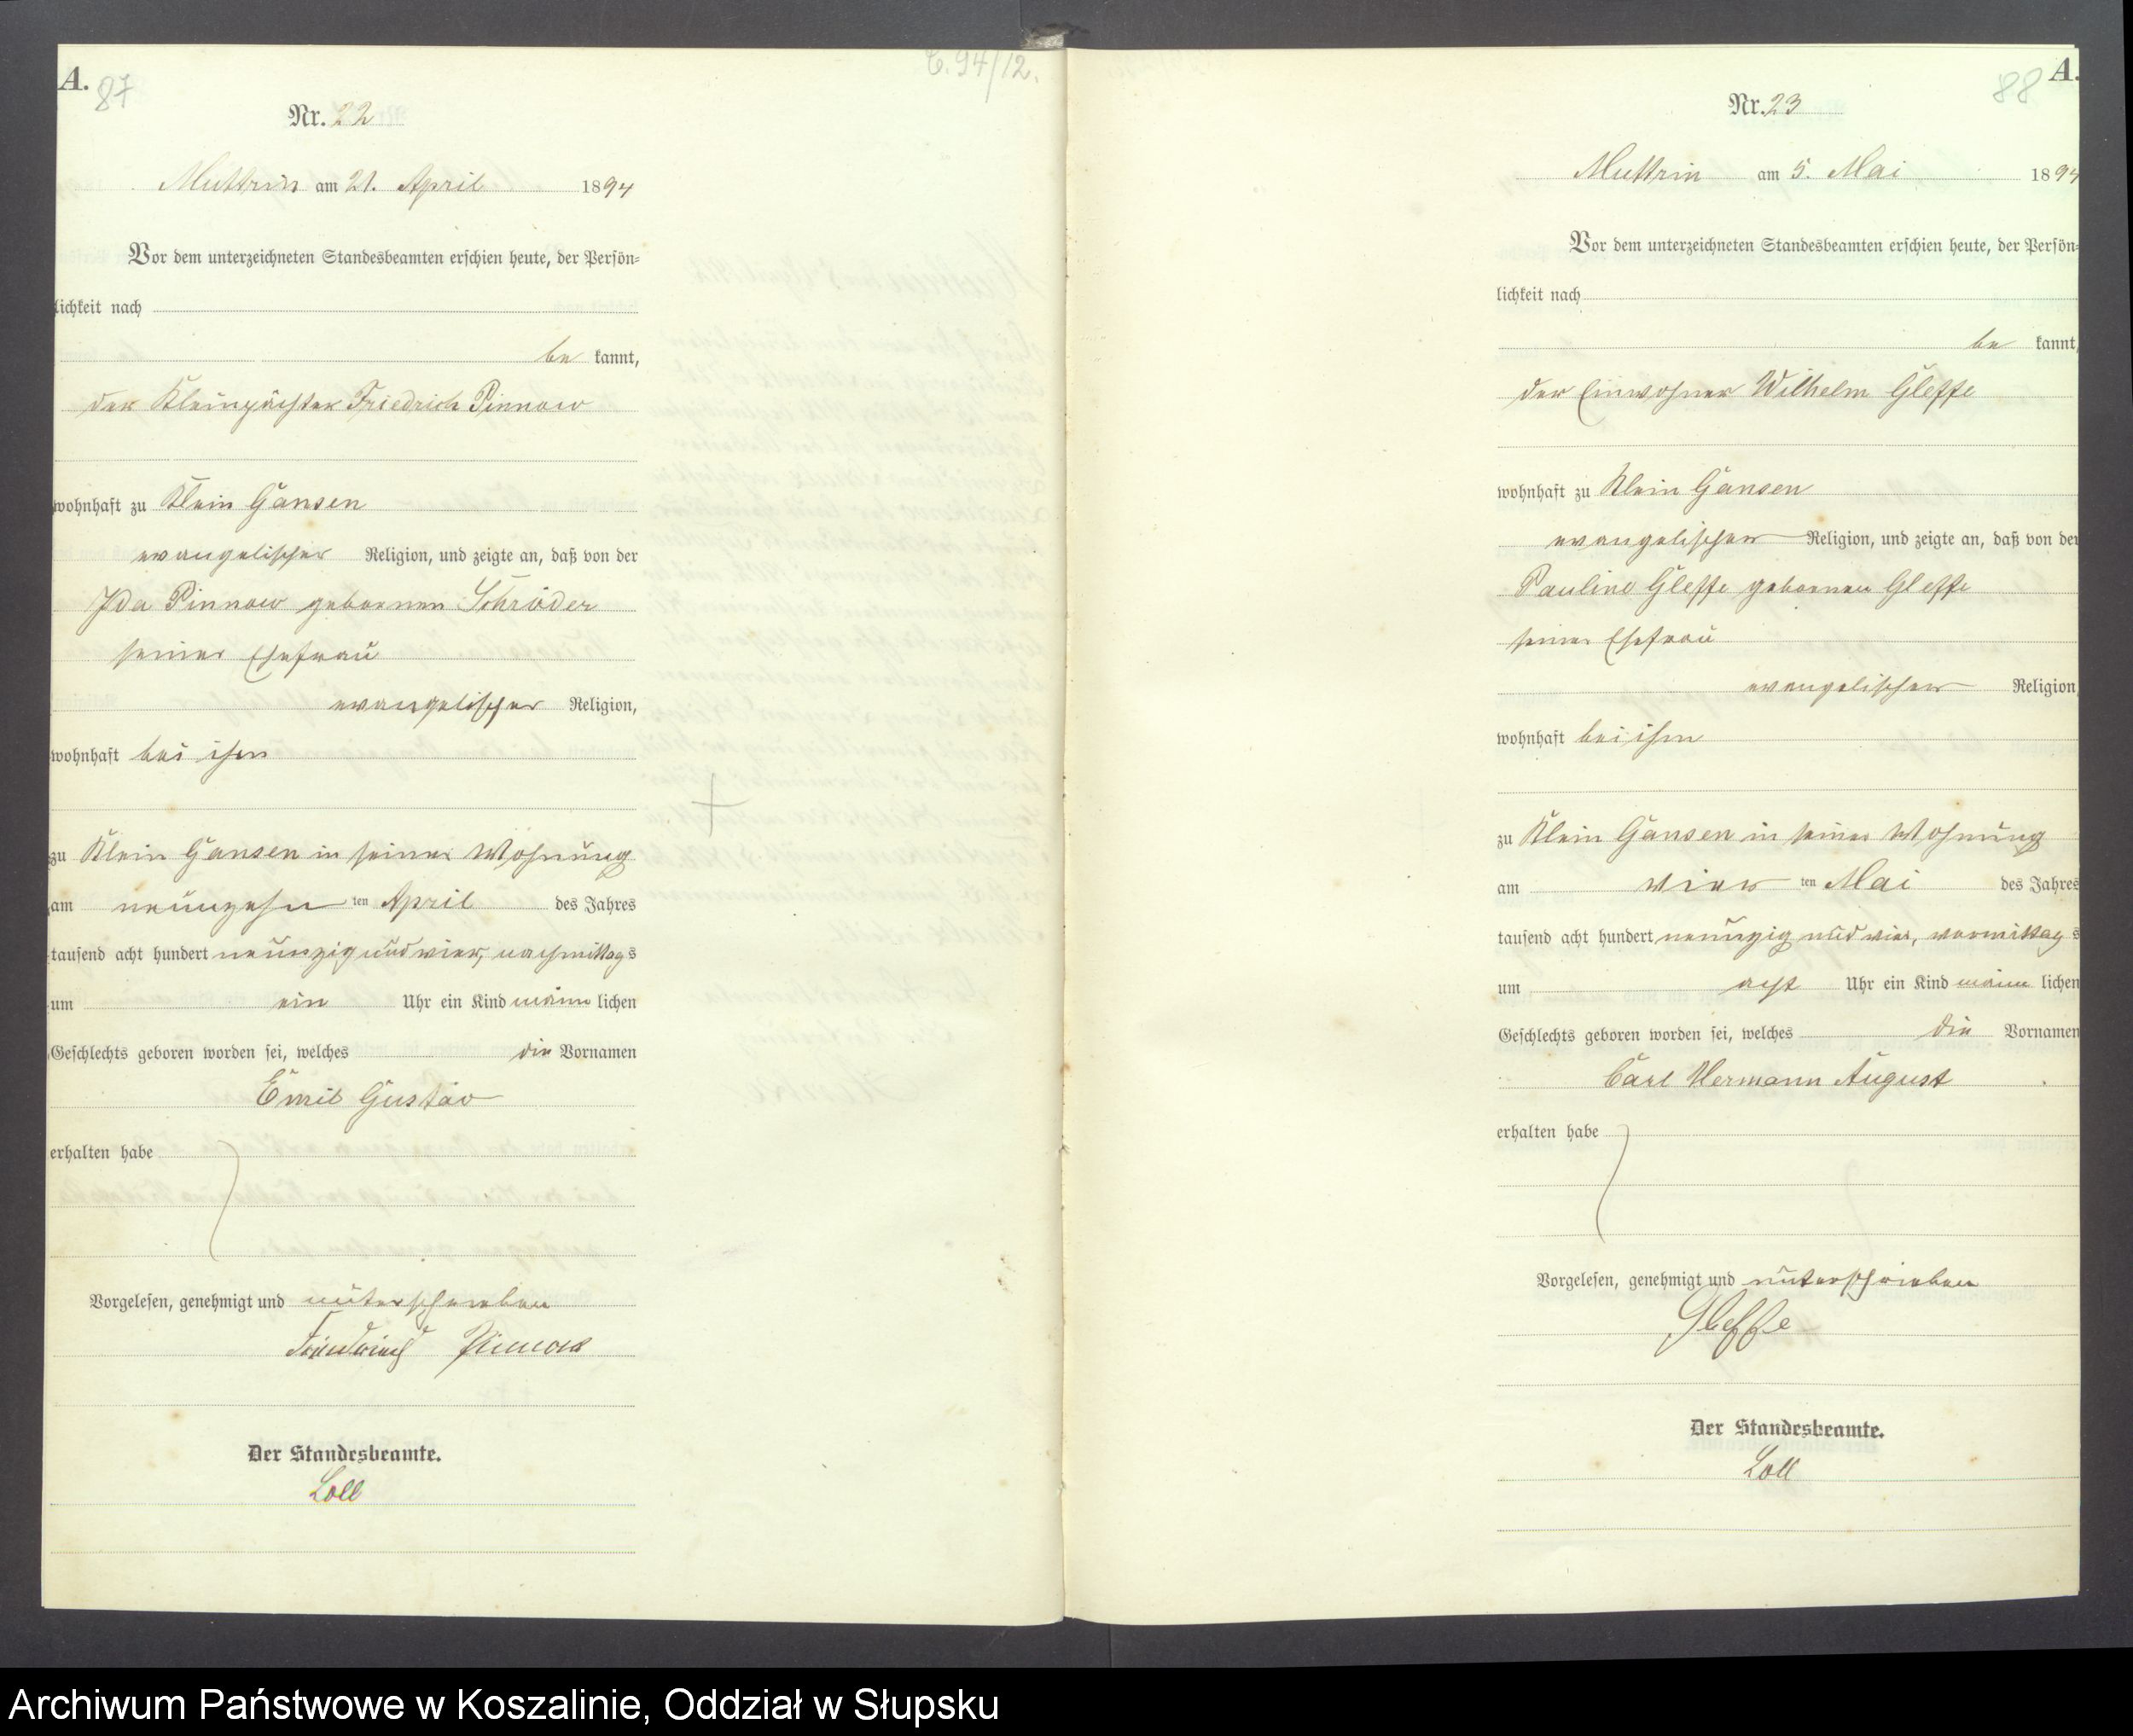 A.
87
C. 94/12.
Nr. 22
Muttrin am 21. April 1894
Vor dem unterzeichneten Standesbeamten erschien heute, der Persön=
lichkeit nach
be kannt,
der Kleinpächter Friedrich Pinnow
wohnhaft zu Klein Gansen
evangelischer Religion, und zeigte an, daß von der
Ida Pinnow geborenen Schröder
seiner Ehefrau
evangelischer Religion,
wohnhaft bei ihm
zu Klein Gansen in seiner Wohnung
am neunzehn ten April des Jahres
tausend acht hundert neunzig und vier, nachmittags
um ein Uhr ein Kind männ lichen
Geschlechts geboren worden sei, welches die Vornamen
Emil Gustav
erhalten habe
Vorgelesen, genehmigt und unterschrieben
Friedrich Pinnow
Der Standesbeamte.
Loll
A.
88
Nr. 23
Muttrin am 5. Mai 1894
Vor dem unterzeichneten Standesbeamten erschien heute, der Persön=
lichkeit nach
be kannt,
der Einwohner Wilhelm Gleffe
wohnhaft zu Klein Gansen
evangelischer Religion, und zeigte an, daß von der
Pauline Gleffe geborenen Gleffe
seiner Ehefrau
evangelischer Religion,
wohnhaft bei ihm
zu Klein Gansen in seiner Wohnung
am vier ten Mai des Jahres
tausend acht hundert neunzig und vier, vormittags
um acht Uhr ein Kind männ lichen
Geschlechts geboren worden sei, welches die Vornamen
Carl Hermann August
erhalten habe
Vorgelesen, genehmigt und unterschrieben
Gleffe
Der Standesbeamte.
Loll
Archiwum Państwowe w Koszalinie, Oddział w Słupsku